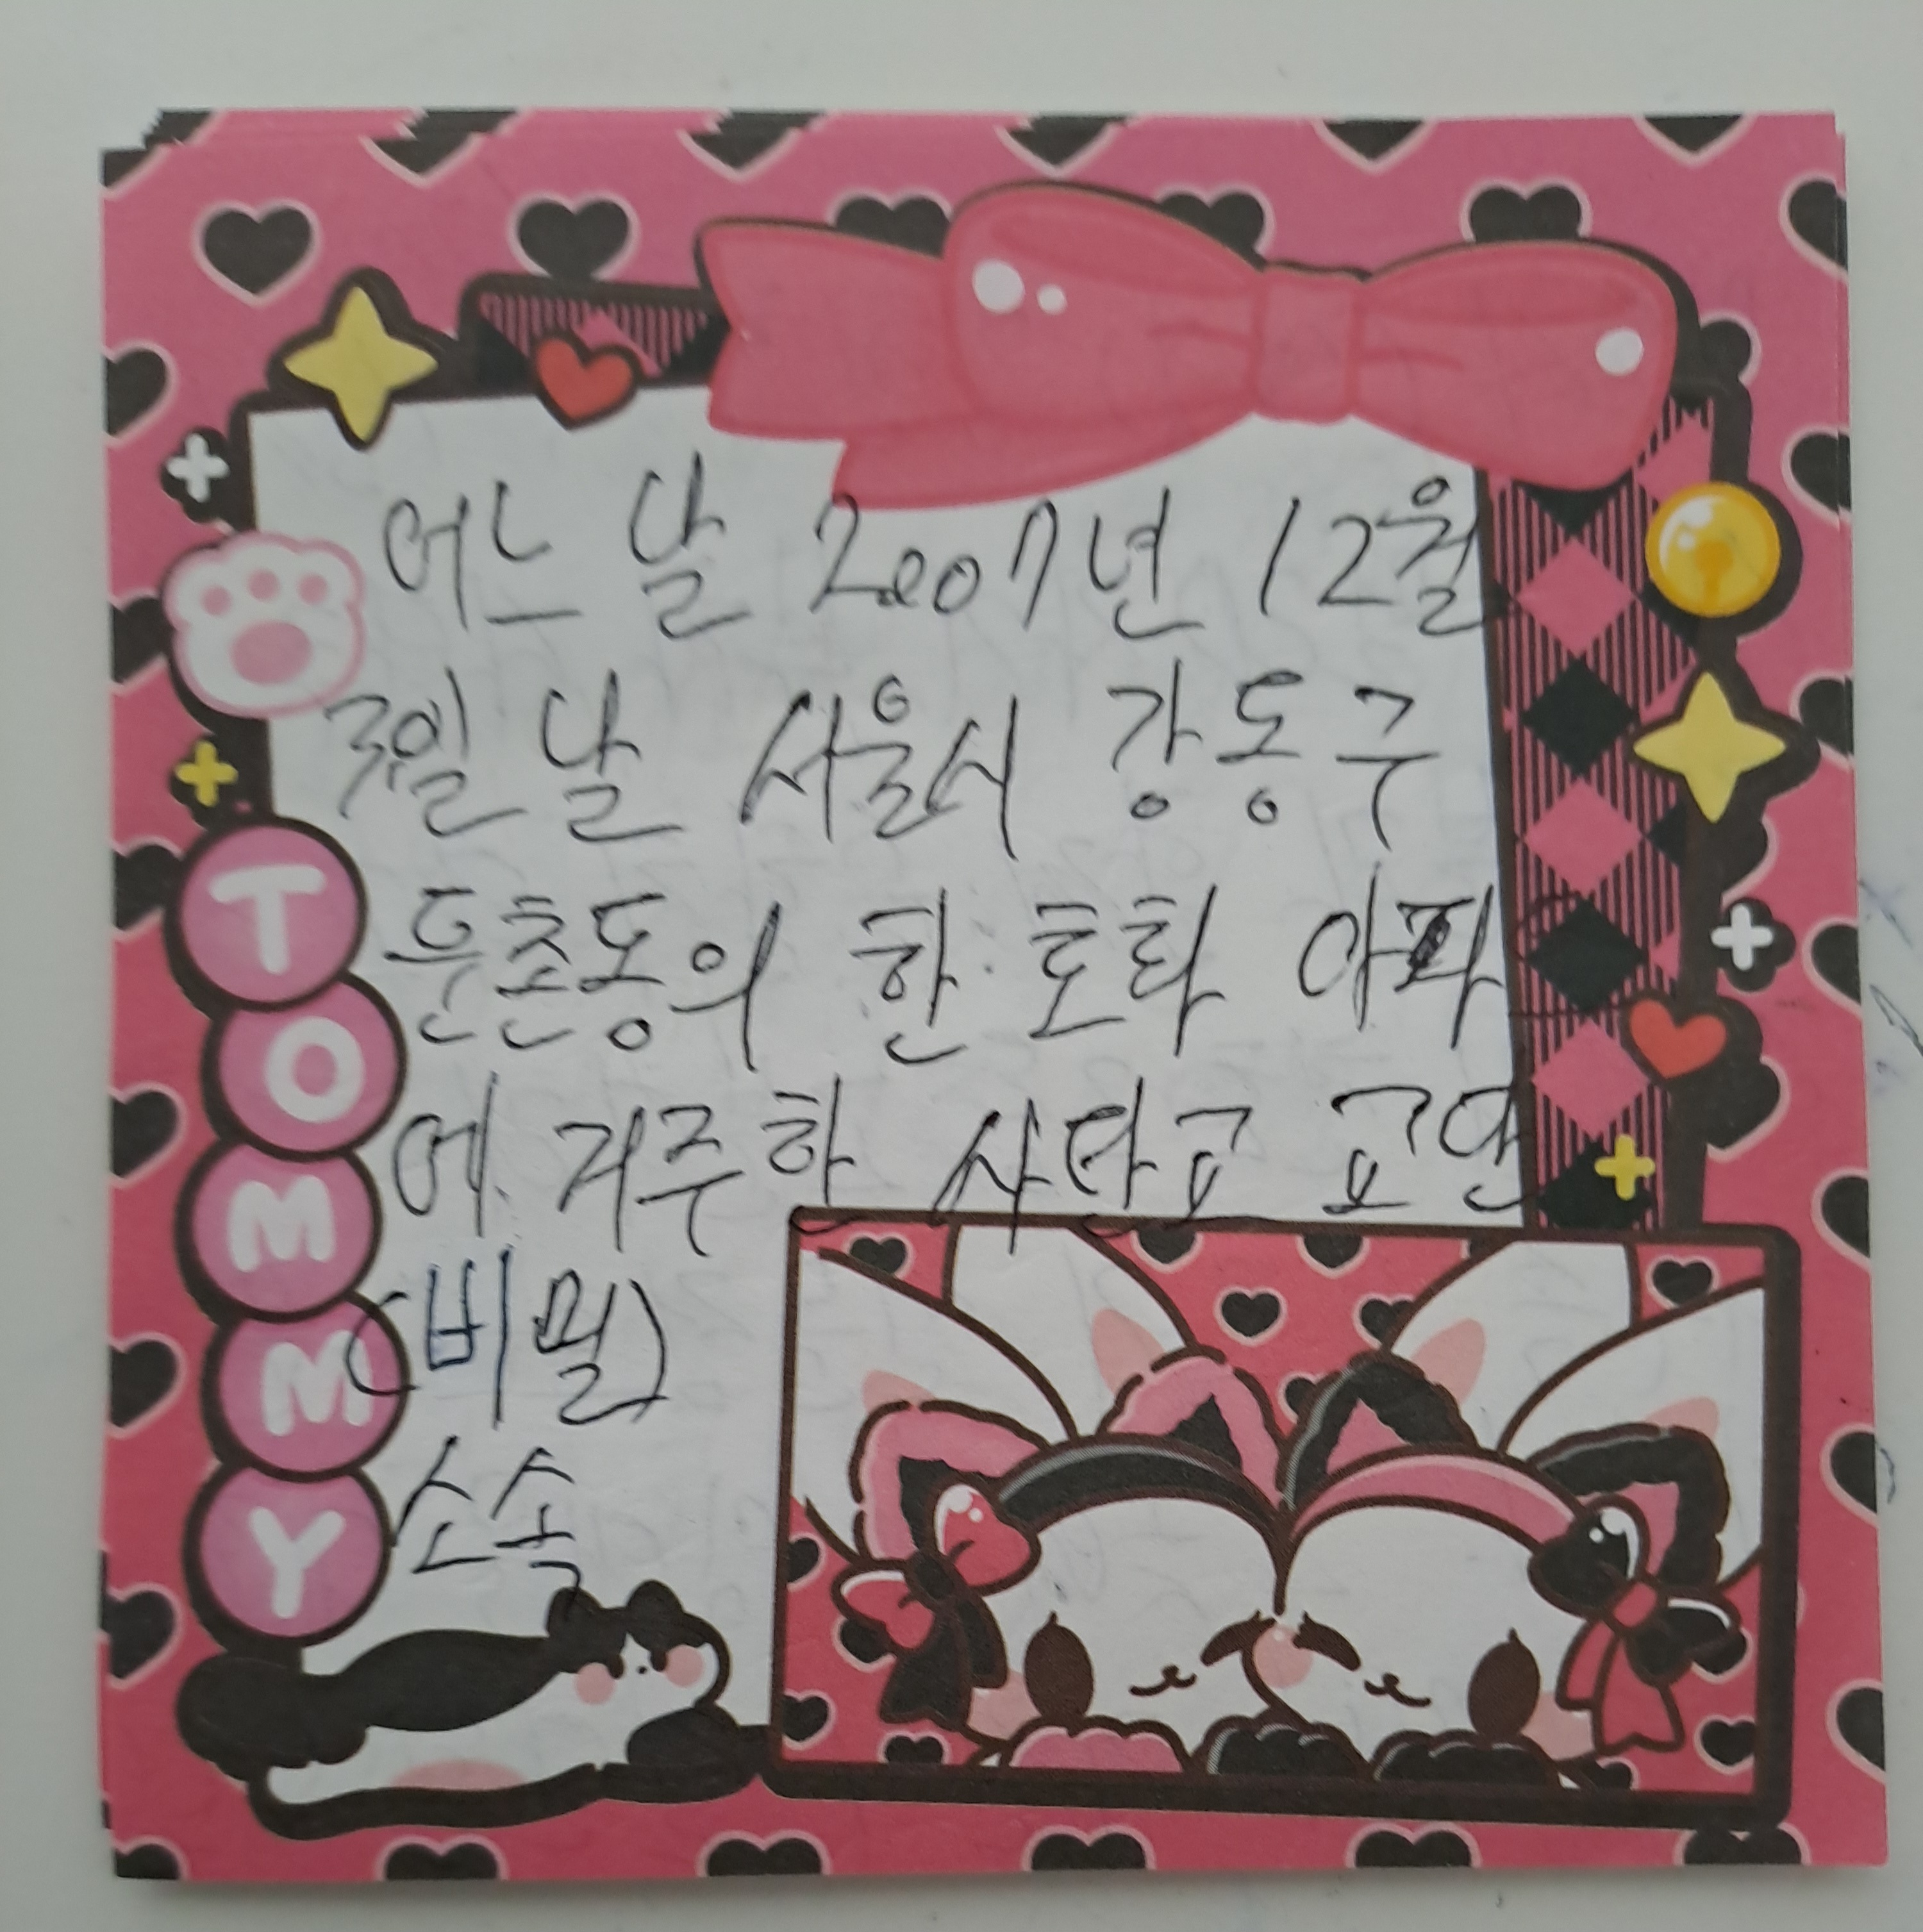 어느 날 2007년 12월
3일 날 서울시 강동구
둔촌동의 한 토화 아파
에 거주하 사단고
(비밀)
소속
TOMMY